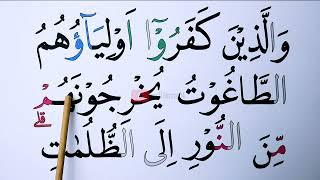 وَالَّذِيْنَ كَفَرُوْۤا اَوْلِيٰٓـُٔهُمُ
الطَّاغُوْتُ يُخْرِجُوْنَهُمْ قلے
مِّنَ النُّوْرِ اِلَى الظُّلُمٰتِ